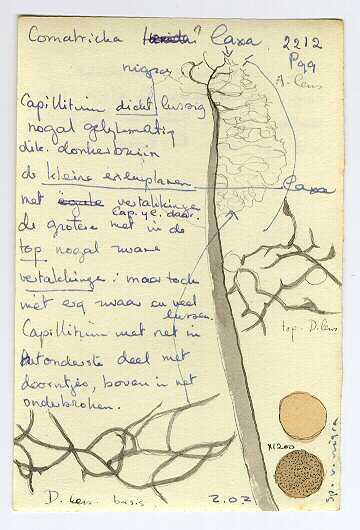 Comatricha laxa 2212
nigra? P99
A. lens
Capillitium dicht lussig
nogal gelijkmatig
dik. donkerbruin
de kleine exemplaren laxa
met vertakkingen
cap. daar.
de grotere met in de
top nogal zware
vertakkingen: maar toch
niet erg zwaar en veel
lussen.
Capillitium met net in
onderste deel met
doorntjes, boven in net
onderbroken.
top. D. lens
x1200
sp. v. nigra
D. lens basis
2.02